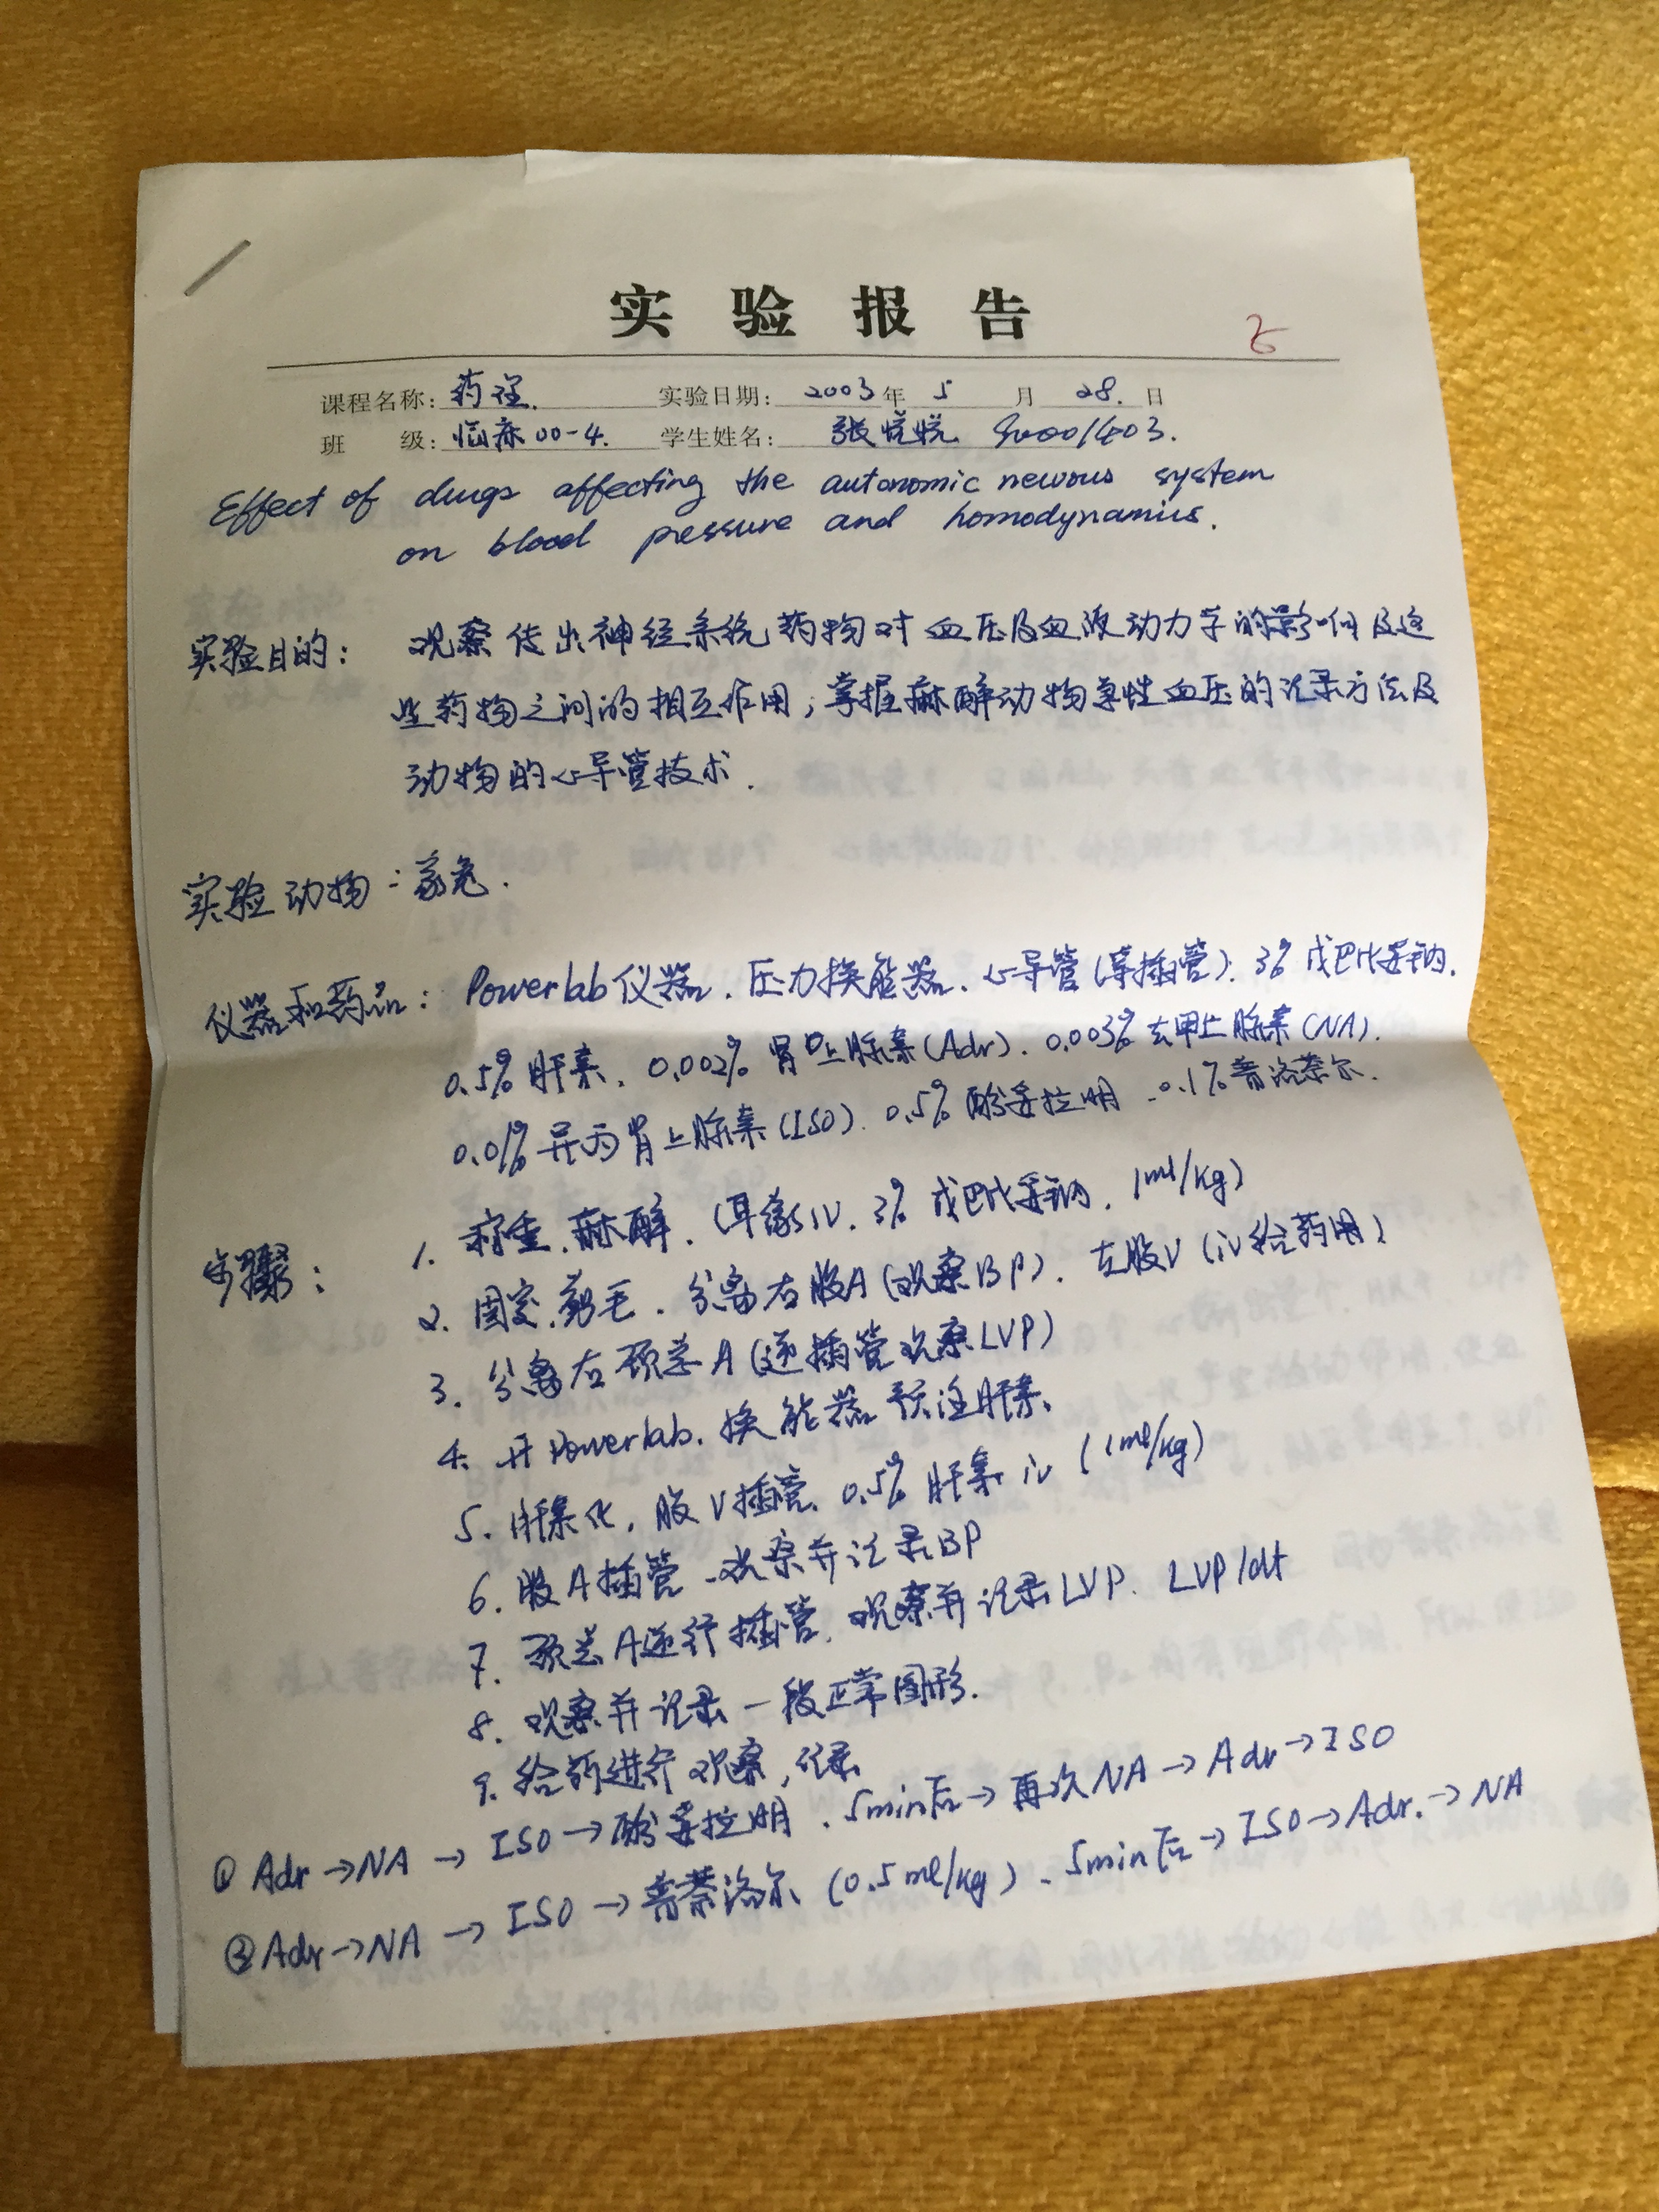 实验报告
课程名称: 药理. 实验日期: 2003年 5 月 28. 日
班 级: 临床00-4. 学生姓名: 张悦悦
Effect of drugs affecting the autonomic nervous system
on blood pressure and homodynamics.
实验目的: 观察传出神经系统药物对血压及血液动力学的影响及这
些药物之间的相互作用; 掌握麻醉动物急性血压的记录方法及
动物的心导管技术.
实验动物: 家兔.
仪器和药品: Powerlab仪器. 压力换能器. 心导管(等插管). 3% 戊巴比妥钠.
0.5% 肝素. 0.002% 肾上腺素(Adr). 0.003% 去甲上腺素(NA).
0.01% 异丙肾上腺素(ISO). 0.5% 酚妥拉明. 0.1% 普洛萘尔.
步骤: 1. 称重. 麻醉. (耳缘iv. 3% 戊巴比妥钠. 1ml/kg)
2. 固定. 剪毛. 分离右股A(观察BP). 左股V(iv给药用)
3. 分离右颈总A(逆插管观察LVP)
4. 开Powerlab. 换能器预注肝素.
5. 肝素化, 股V插管. 0.5% 肝素 iv (1ml/kg)
6. 股A插管. 观察并记录BP
7. 颈总A逆行插管. 观察并记录LVP. LVP/dt
8. 观察并记录一段正常图形.
9. 给药进行观察, 记录
① Adr→NA→ISO→酚妥拉明. 5min后→再次NA→Adr→ISO
② Adr→NA→ISO→普萘洛尔(0.5ml/kg). 5min后→ISO→Adr.→NA